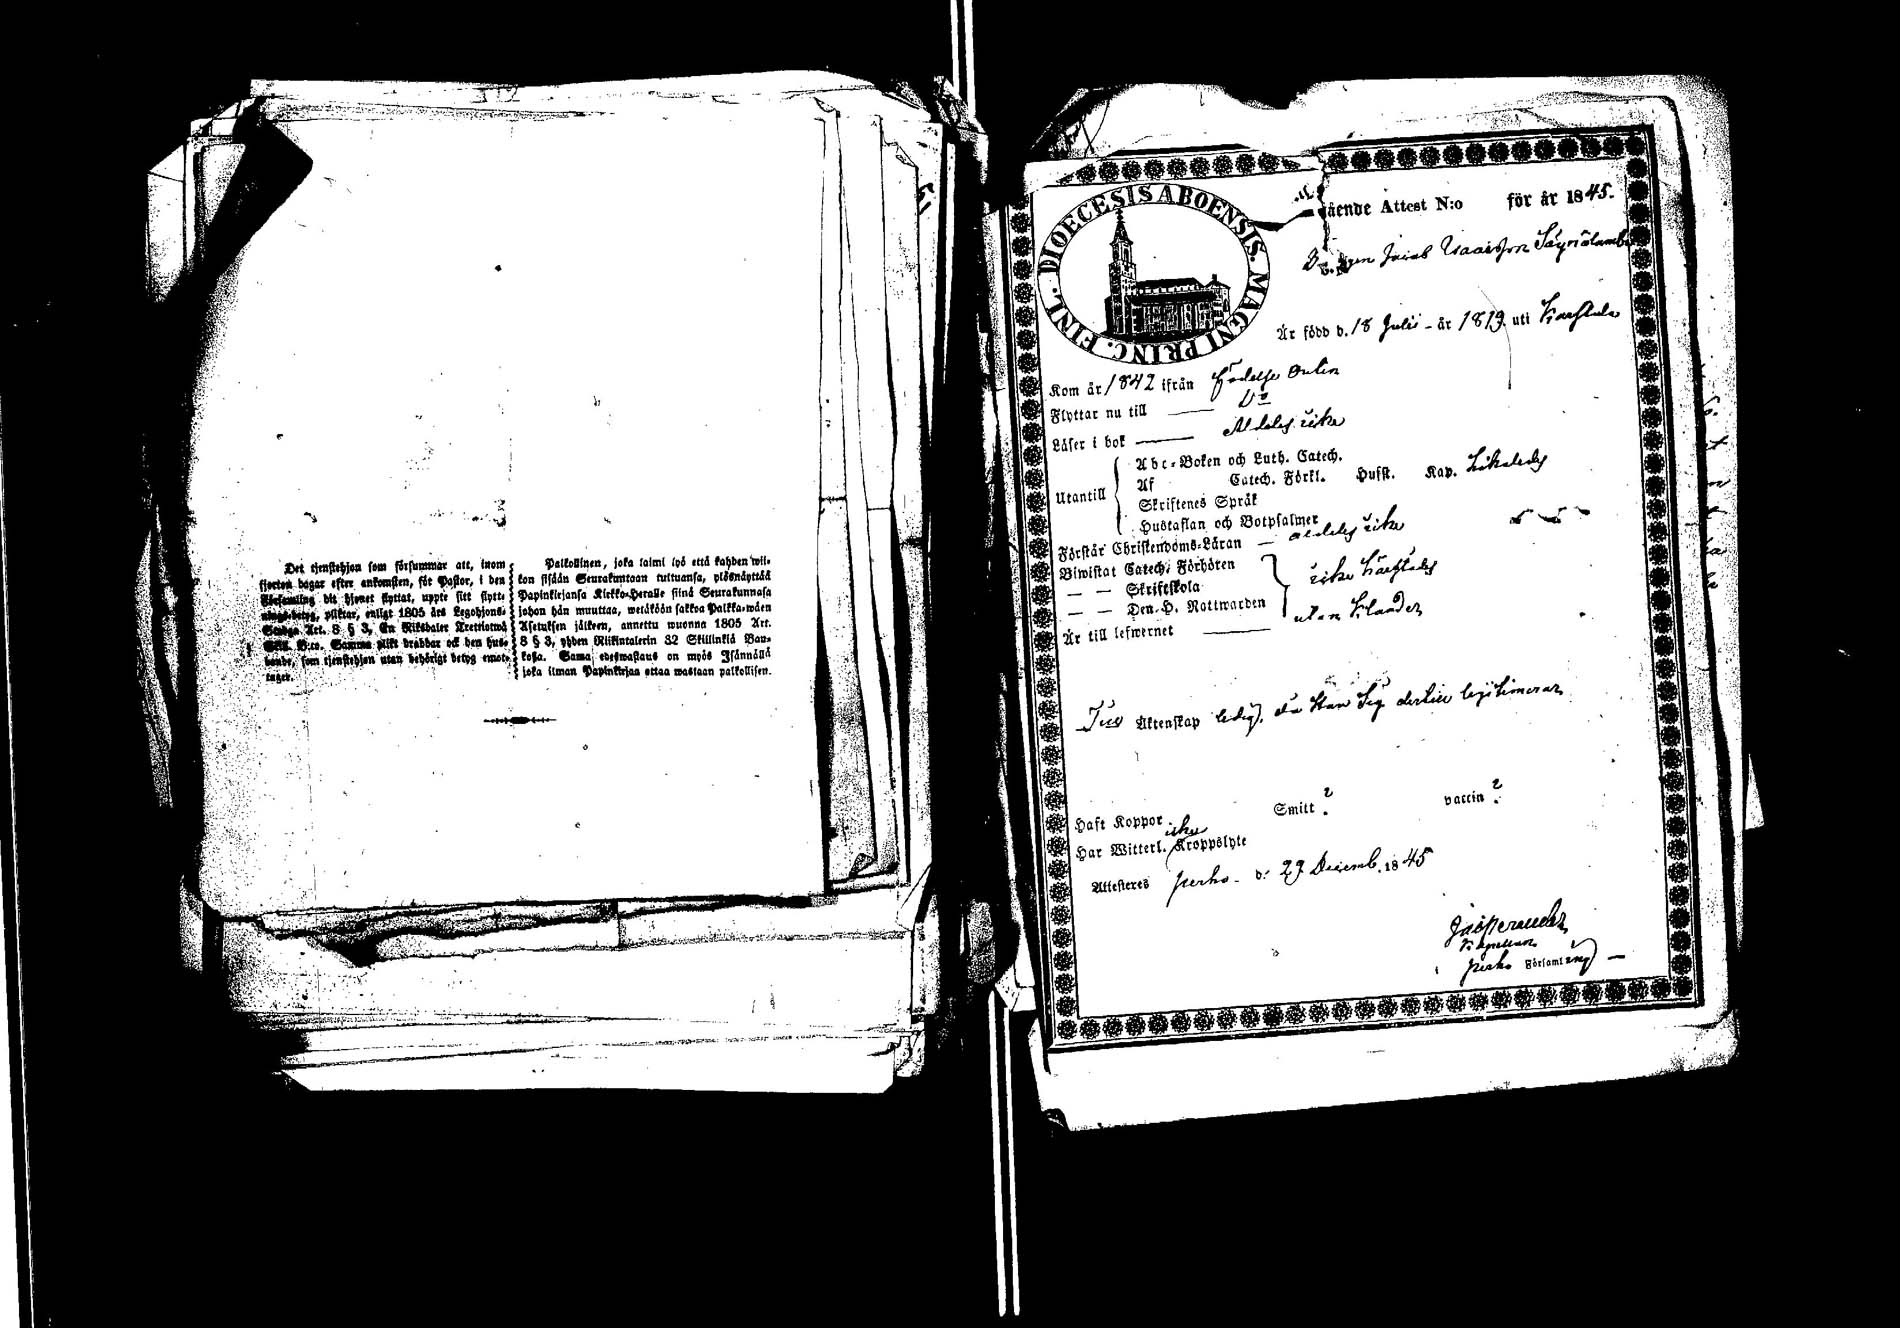 Det tjenstehjon som försummar att, inom
fjorton dagar efter ankomsten, för Pastor, i den
Församling dit hjonet flyttat, uppte sitt flytt-
nings-betyg, pliktar, enligt 1805 års Legohjons-
Stadga Art. 8 § 3, En Riksdaler Trettiotwå
Skill. B:co. Samma plikt drabbar ock den hus-
bonde, som tjenstehjon utan behörigt betyg emot-
tager.
Palkollinen, joka laimi lyö että kahden wii-
kon sisään Seurakuntaan tultuansa, ylösnäyttää
Papinkirjansa Kirkko-Heralle siinä Seurakunnasa
johon hän muuttaa, wetäköön sakkoa Palkka-wäen
Asetuksen jälkeen, annettu wuonna 1805 Art.
8 § 3, yhden Riikintalerin 32 Skillinkiä Ban-
kosa. Sama edeswastaus on myös Isännällä
joka ilman Papinkirjaa ottaa wastaan palkollisen.
DIOECESIS ABOENSIS. MAGNI PRINC. FINL.
gående Attest N:o för år 1845.
Jacob Isaacsson
Är född d. 18 Julii - år 1819. uti Karstula
Kom år 1842 ifrån Födelse Orten
Flyttar nu till Do
Läser i bok Aldeles icke
Utantill
Abc-Boken och Luth. Catech.
Af Catech. Förkl. Hufst. Kap. Likaledes
Skriftenes Språk
Hustaflan och Botpsalmer
Förstår Christendoms-Läran — aldeles icke
Biwistat Catech. Förhören
— — Skriftskola icke härstädes
— — Den H. Nattwarden
Är till lefwernet utan klander
Till Äktenskap ledig, då Han Sig dertill legitimerar
Haft Koppor Smitt ? vaccin ?
Har Witterl. Kroppslyte icke
Attesteres Perho d. 29 Decemb. 1845
Kapellan
Perho Församling